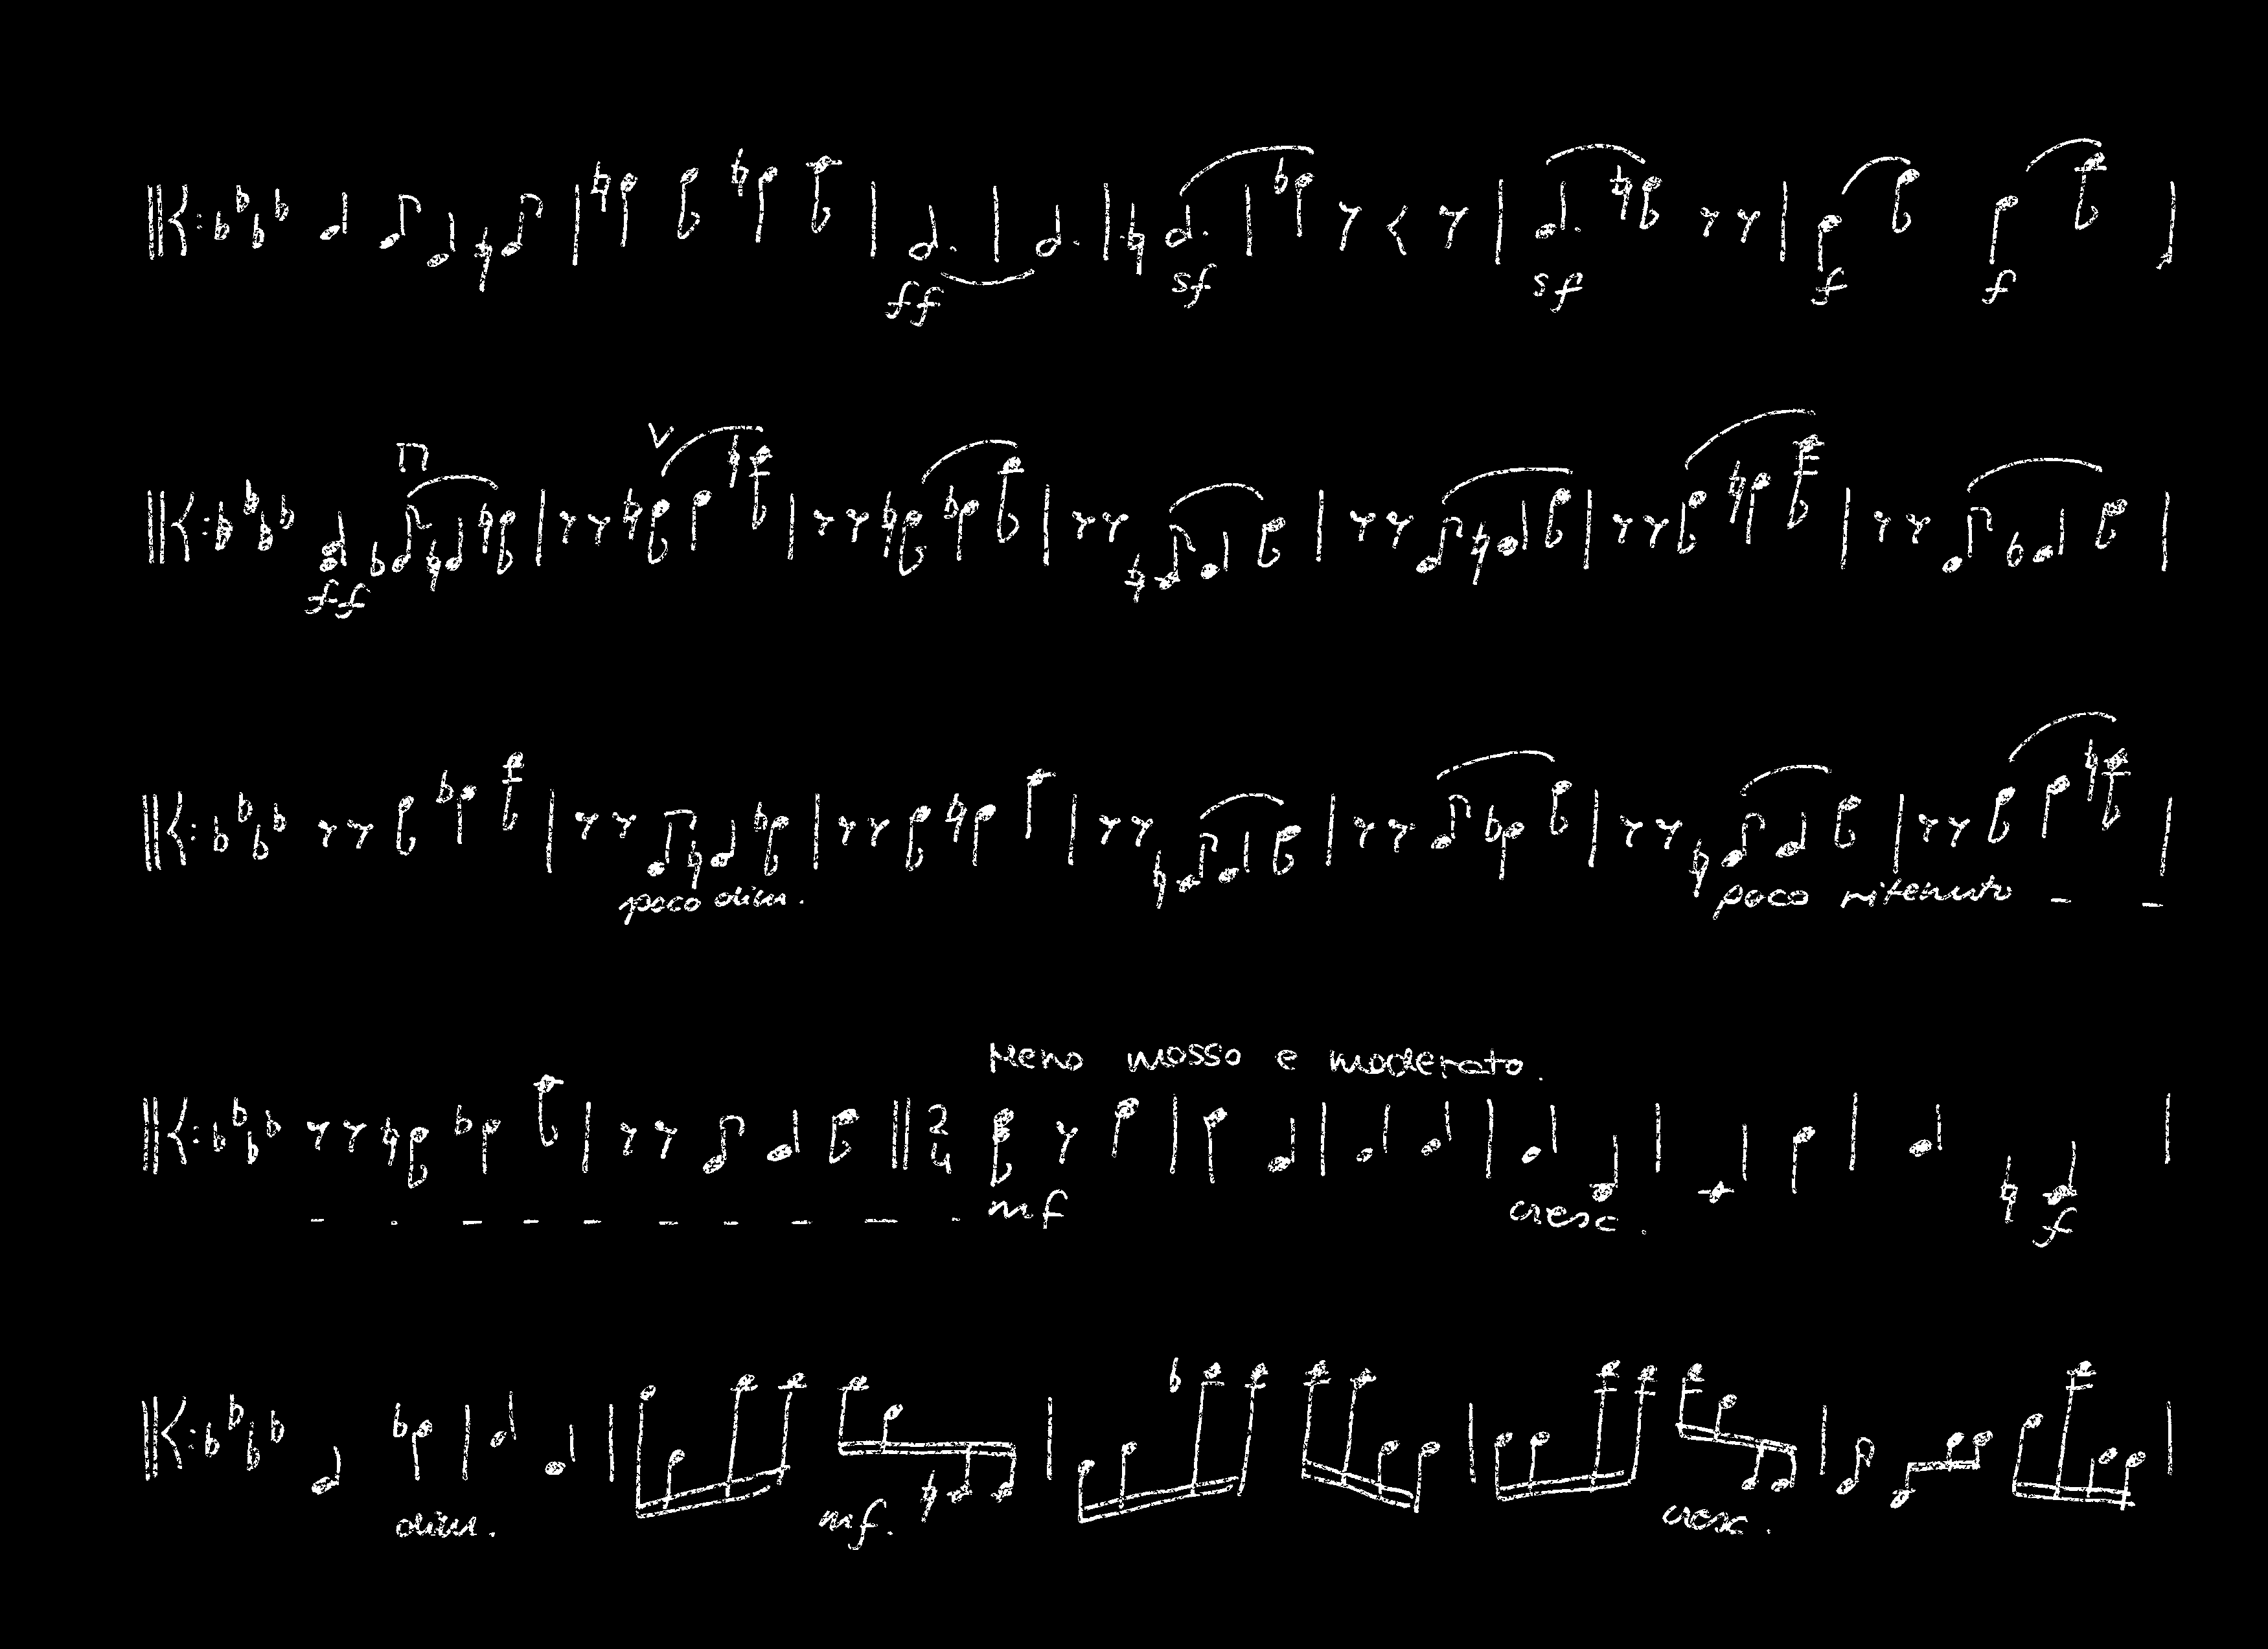 ff sf sf f f
ff
poco dim. poco ritenuto
Meno mosso e moderato.
2
4
mf cresc. f
dim. mf. cresc.